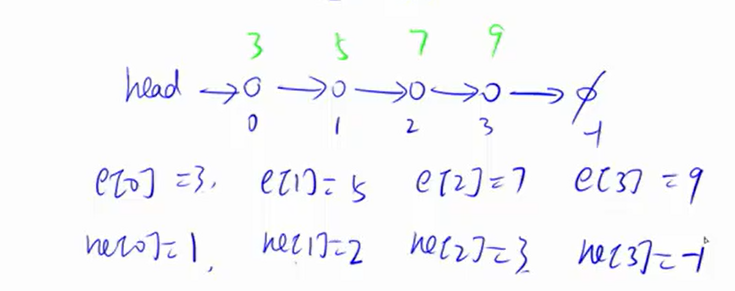 3 5 7 9
head → o → o → o → o → ∅
0 1 2 3 -1
e[0] = 3, e[1] = 5 e[2] = 7 e[3] = 9
ne[0] = 1, ne[1] = 2 ne[2] = 3, ne[3] = -1